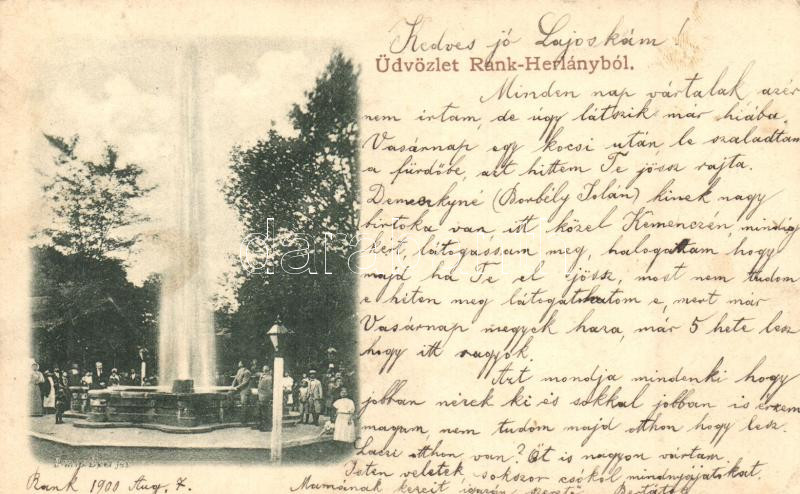 Kedves jó Lajoskám!
Üdvözlet Rank-Herlányból.
Minden nap vártalak azér
nem irtam, de úgy látszik már hiába.
Vasárnap egy kocsi után le szaladtam
a fürdőbe, azt hittem Te jössz rajta.
(Borbély Jolán) kinek nagy
birtoka van itt közel Kemenczén, mindig
kért, látogassam meg, halogattam hogy
majd ha Te el jössz, most nem tudom
e héten meg látogathatom e, mert már
Vasárnap megyek haza, már 5 hete lesz
hogy itt vagyok.
Azt mondja mindenki hogy
jobban nézek ki és sokkal jobban is érzem
magam, nem tudom majd otthon hogy lesz.
Laczi otthon van? Őt is nagyon vártam.
Isten veletek sokszor csókol mindnyájatokat
Rank 1900 Aug. 7.
Mamának kezeit igazán szerető
darabanth